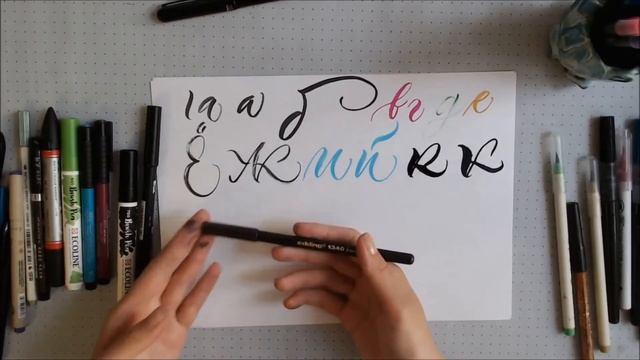 а а б в г д е
Ё Ж и й к к
edding 1340
Brush Pen ECOLINE
Brush Pen ECOLINE